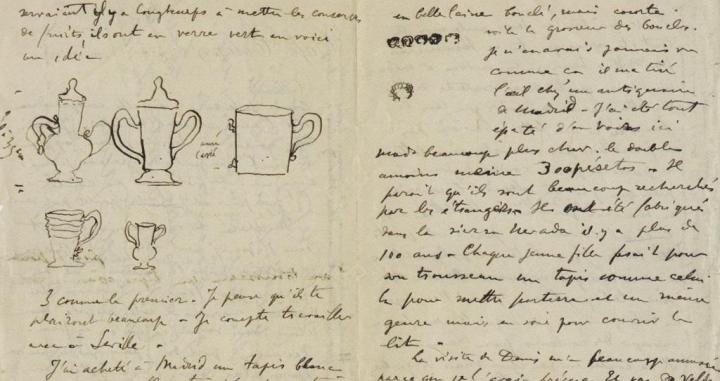 servaient il y a longtemps à mettre les conserves
de fruits ils sont en verre vert en voici
une idée
carré
3 comme le premier. Je pense qu'ils te
plairont beaucoup. Je compte travailler
avec à Séville.
J'ai acheté à Madrid un tapis blanc
en belle laine bouclé, mais courte.
voilà la grosseur des boucles.
Je n'en avais jamais vu
comme ça il m'a tiré
l'œil chez un antiquaire
de Madrid. J'ai été tout
épaté d'en voir ici
mais beaucoup plus cher. le double
au moins même 300 pésetos. Il
paraît qu'ils sont beaucoup recherchés
par les étrangers. Ils ont été fabriqués
dans la sierra Nevada il y a plus de
100 ans. Chaque jeune fille faisait pour
son trousseau un tapis comme celui
là pour mettre par terre et un même
genre mais en soie pour couvrir le
lit.
La visite de m'a beaucoup